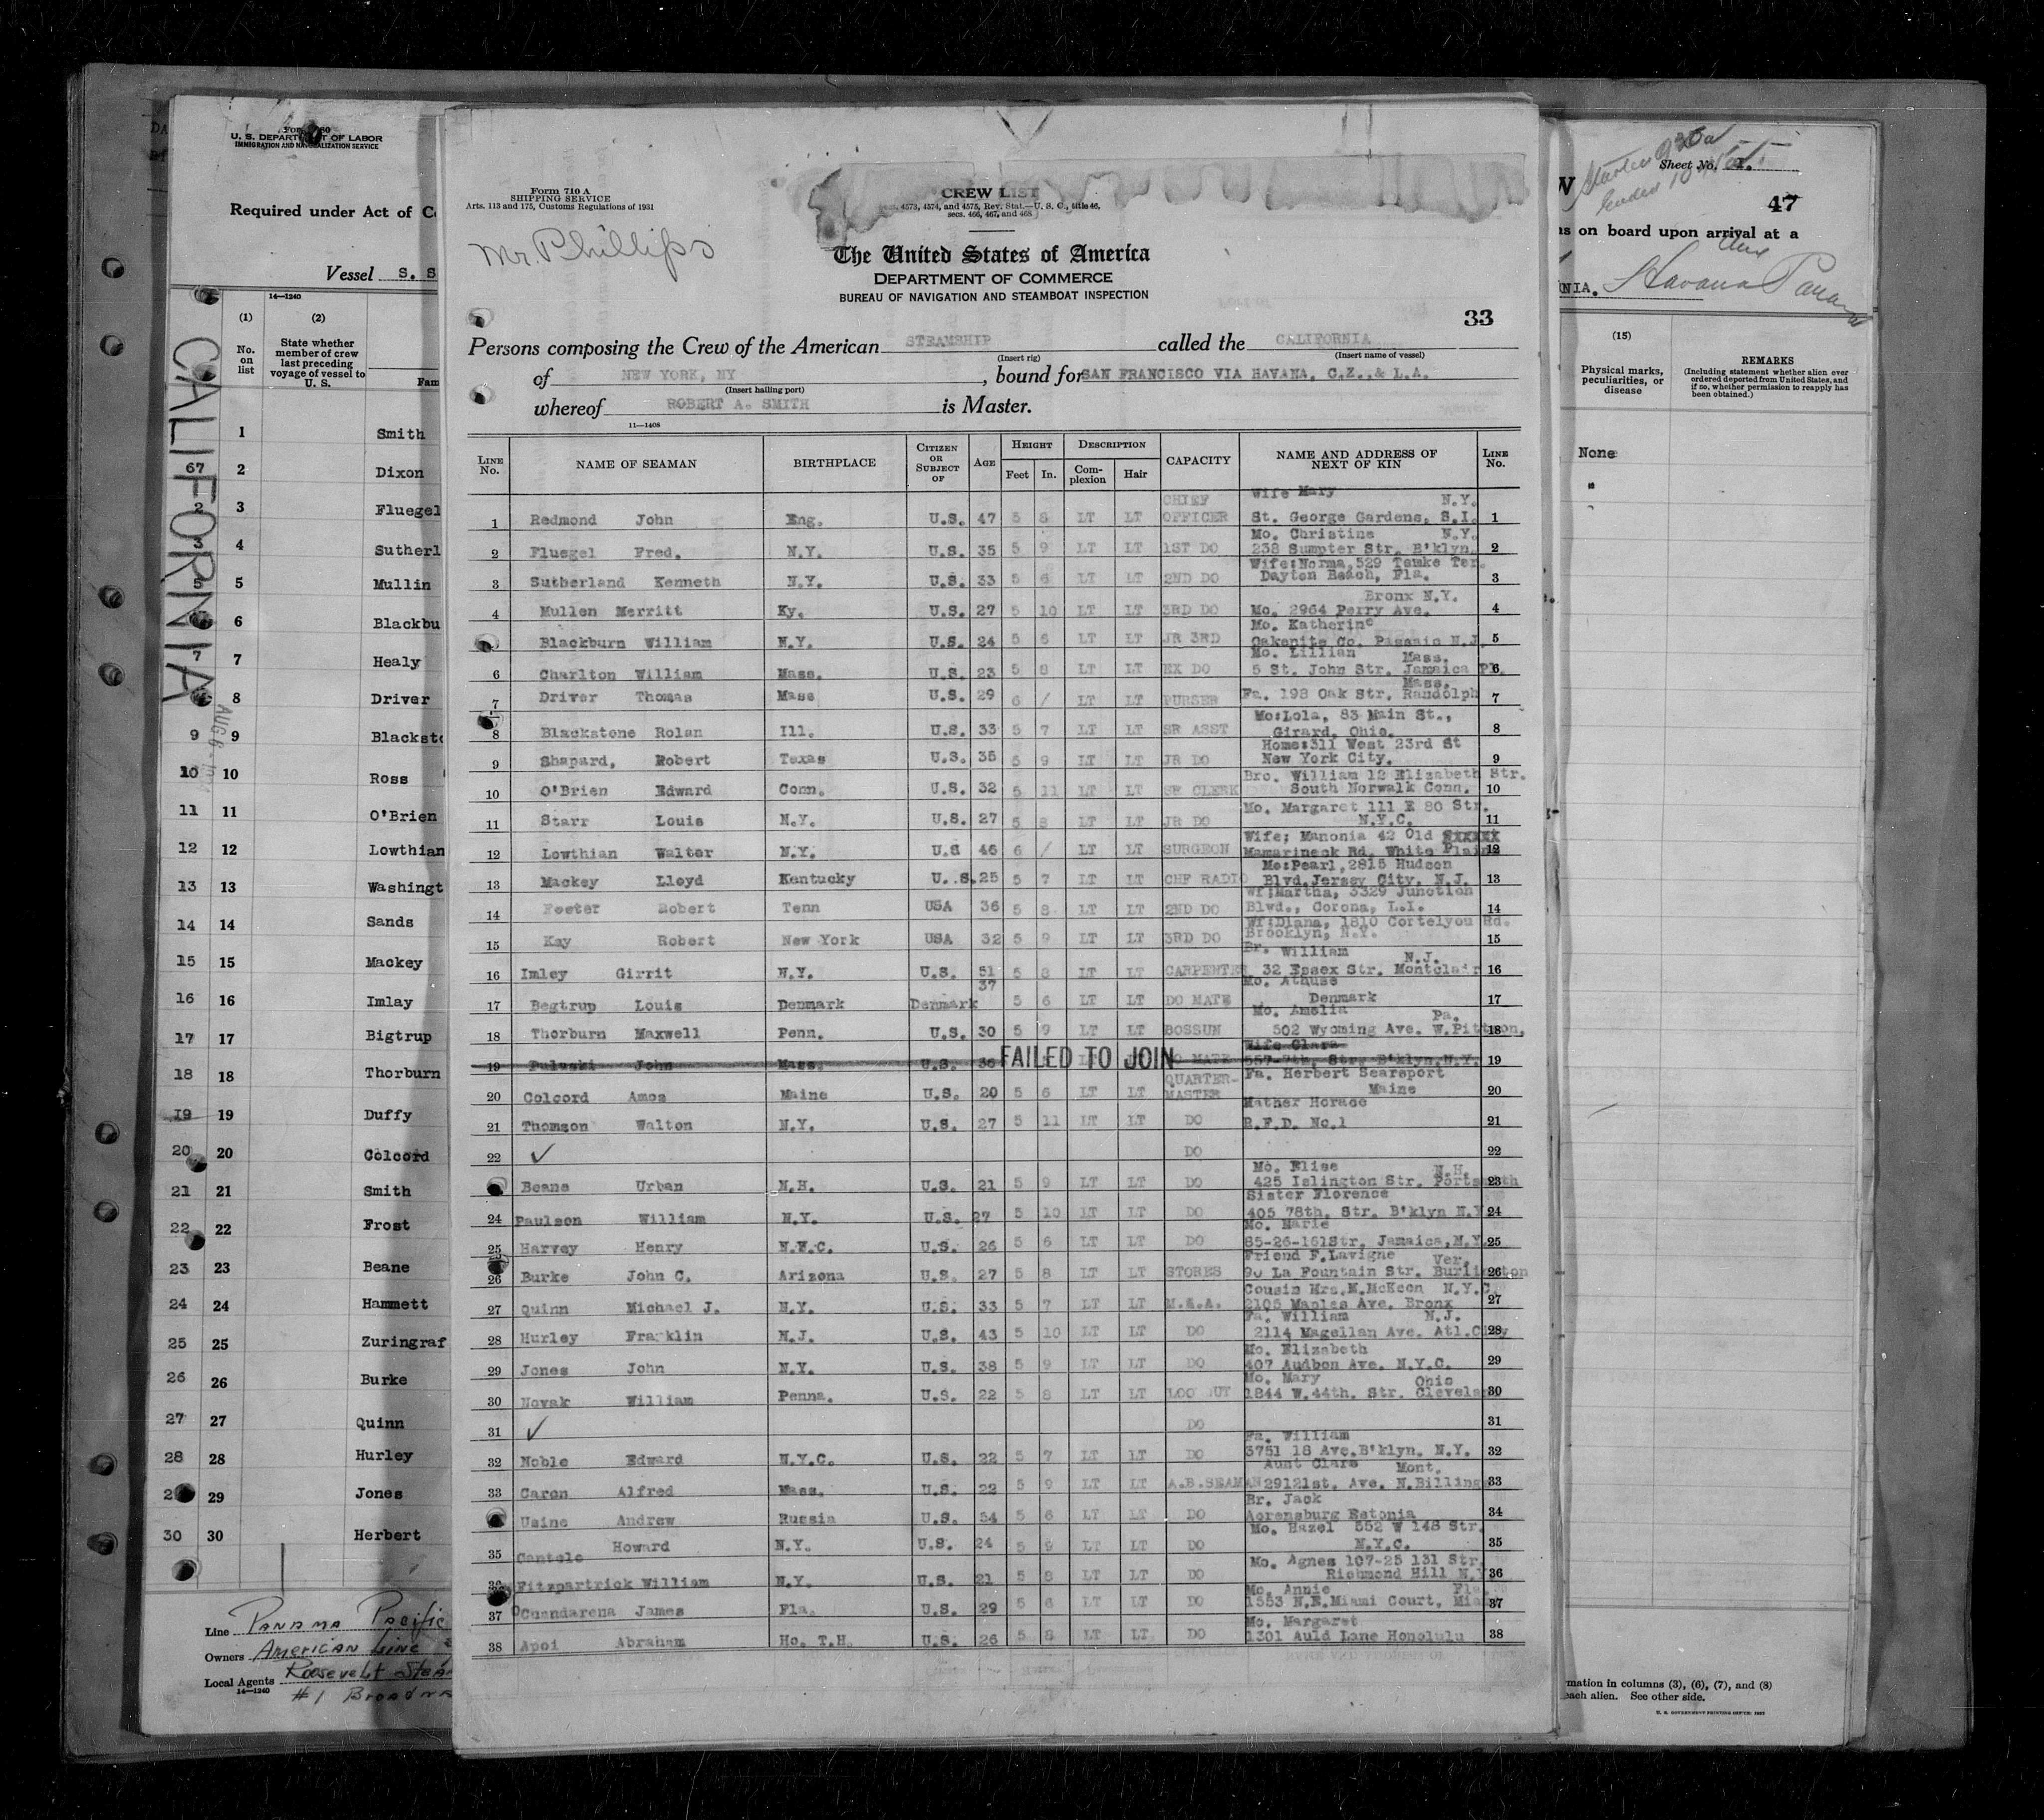 Form 710 A
SHIPPING SERVICE
Arts. 113 and 175, Customs Regulations of 1931
Mr. Phillips
CREW LIST
4573, 4574, and 4575, Rev. Stat.—U. S. C., title 46,
secs. 466, 467, and 468
The United States of America
DEPARTMENT OF COMMERCE
BUREAU OF NAVIGATION AND STEAMBOAT INSPECTION
33
Persons composing the Crew of the American STEAMSHIP called the CALIFORNIA
(Insert rig) (Insert name of vessel)
of NEW YORK, NY, bound for SAN FRANCISCO VIA HAVANA, C.Z.,& L.A.
(Insert hailing port)
whereof ROBERT A. SMITH is Master.
11—1408
LINE No. NAME OF SEAMAN BIRTHPLACE CITIZEN OR SUBJECT OF AGE HEIGHT Feet In. DESCRIPTION Complexion Hair CAPACITY NAME AND ADDRESS OF NEXT OF KIN LINE No.
1 Redmond John Eng. U.S. 47 5 8 LT LT CHIEF OFFICER Wife Mary St. George Gardens, S.I. N.Y. 1
2 Fluegel Fred. N.Y. U.S. 35 5 9 LT LT 1ST DO Mo. Christine 238 Sumpter Str. B'klyn. N.Y. 2
3 Sutherland Kenneth N.Y. U.S. 33 5 6 LT LT 2ND DO Wife:Norma,529 Temke Ter. Dayton Beach, Fla. 3
4 Mullen Merritt Ky. U.S. 27 5 10 LT LT 3RD DO Mo. 2964 Perry Ave. Bronx N.Y. 4
Blackburn William N.Y. U.S. 24 5 6 LT LT JR 3RD Mo. Katherine Oakenite Co. Passaic N.J. 5
6 Charlton William Mass. U.S. 23 5 8 LT LT EX DO Mo. Lillian 5 St. John Str. Jamaica Pl. Mass. 6
7 Driver Thomas Mass U.S. 29 6 / LT LT PURSER Fa. 198 Oak Str. Randolph Mass. 7
8 Blackstone Rolan Ill. U.S. 33 5 7 LT LT SR ASST Mo:Lola, 83 Main St., Girard, Ohio. 8
9 Shapard, Robert Texas U.S. 35 5 9 LT LT JR DO Home:311 West 23rd St New York City. 9
10 O'Brien Edward Conn. U.S. 32 5 11 LT LT SR CLERK Bro. William 12 Elizabeth Str. South Norwalk Conn. 10
11 Starr Louis N.Y. U.S. 27 5 8 LT LT JR DO Mo. Margaret 111 E 80 Str. N.Y.C. 11
12 Lowthian Walter N.Y. U.S 46 6 / LT LT SURGEON Wife; Manonia 42 Old Mamarineck Rd. White Plains 12
13 Mackey Lloyd Kentucky U. S. 25 5 7 LT LT CHF RADIO Mo:Pearl,2815 Hudson Blvd.Jersey City, N.J. 13
14 Foster Robert Tenn USA 36 5 8 LT LT 2ND DO Wf:Martha, 3329 Junction Blwd., Corona, L.I. 14
15 Kay Robert New York USA 32 5 9 LT LT 3RD DO Wf:Diana, 1810 Cortelyou Rd. Brooklyn, N.Y. 15
16 Imley Girrit N.Y. U.S. 51 5 8 LT LT CARPENTER Br. William 32 Essex Str. Montclair N.J. 16
17 Begtrup Louis Denmark Denmark 37 5 6 LT LT DO MATE Mo. Athuse Denmark 17
18 Thorburn Maxwell Penn. U.S. 30 5 9 LT LT BOSSUN Mo. Amelia 502 Wyoming Ave. W.Pittson, Pa. 18
19 Puluski John Mass. U.S. 36 FAILED TO JOIN DO MATE Wife Clara 557-7th, Str. B'klyn.N.Y. 19
20 Colcord Amos Maine U.S. 20 5 6 LT LT QUARTER-MASTER Fa. Herbert Searsport Maine 20
21 Thomson Walton N.Y. U.S. 27 5 11 LT LT DO Mather Horace R.F.D. No.1 21
22 ✓ DO 22
Beane Urban N.H. U.S. 21 5 9 LT LT DO Mo. Elise 425 Islington Str. Portsmouth N.H. 23
24 Paulson William N.Y. U.S. 27 5 10 LT LT DO Sister Florence 405 78th. Str. B'klyn N.Y. 24
25 Harvey Henry N.Y.C. U.S. 26 5 6 LT LT DO Mo. Marie 85-26-161Str. Jamaica,N.Y. 25
26 Burke John C. Arizona U.S. 27 5 8 LT LT STORES Friend F.Lavigne 90 La Fountain Str. Burlington Ver. 26
27 Quinn Michael J. N.Y. U.S. 33 5 7 LT LT M.A.A. Cousin Mrs.M.McKeon N.Y.C. 2105 Maples Ave. Bronx 27
28 Hurley Franklin N.J. U.S. 43 5 10 LT LT DO Fa. William 2114 Magellan Ave. Atl.City N.J. 28
29 Jones John N.Y. U.S. 38 5 9 LT LT DO Mo. Elizabeth 407 Audbon Ave. N.Y.C. 29
30 Novak William Penna. U.S. 22 5 8 LT LT LOOKOUT Mo. Mary 1844 W.44th. Str. Cleveland Ohio 30
31 ✓ DO 31
32 Noble Edward N.Y.C. U.S. 22 5 7 LT LT DO Fa. William 3751 18 Ave.B'klyn. N.Y. 32
33 Caron Alfred Mass. U.S. 22 5 9 LT LT A.B.SEAMAN Aunt Clara 29121st. Ave. N.Billings Mont. 33
Usine Andrew Russia U.S. 34 5 6 LT LT DO Br. Jack Aorensburg Estonia 34
35 Cantelo Howard N.Y. U.S. 24 5 9 LT LT DO Mo. Hazel 552 W 148 Str. N.Y.C. 35
36 Fitzpartrick William N.Y. U.S. 21 5 8 LT LT DO Mo. Agnes 107-25 131 Str. Richmond Hill N.Y. 36
37 Cuendarena James Fla. U.S. 29 5 6 LT LT DO Mo. Annie 1553 N.E.Miami Court, Mia Fla. 37
38 Apoi Abraham Ho. T.H. U.S. 26 5 8 LT LT DO Mo. Margaret 1301 Auld Lane Honolulu 38
U. S. DEPARTMENT OF LABOR
IMMIGRATION AND NATURALIZATION SERVICE
Required under Act of C
Vessel S. S
14—1240
CALIFORNIA
(1) (2)
No. on list
State whether member of crew last preceding voyage of vessel to U. S.
Fam
1 Smith
67 2 Dixon
2 3 Fluegel
3 4 Sutherl
5 5 Mullin
6 Blackbu
7 7 Healy
8 Driver
9 9 Blacksto
10 10 Ross
11 11 O'Brien
12 12 Lowthian
13 13 Washingt
14 14 Sands
15 15 Mackey
16 16 Imlay
17 17 Bigtrup
18 18 Thorburn
19 19 Duffy
20 20 Colcord
21 21 Smith
22 22 Frost
23 23 Beane
24 24 Hammett
25 25 Zuringraf
26 26 Burke
27 27 Quinn
28 28 Hurley
29 Jones
30 30 Herbert
Line Panama Pacific
Owners American Line
Local Agents Roosevelt Steam
14—1240
#1 Broadwa
Sheet No. 1.
47
ns on board upon arrival at a
NIA. Havana Panama
(15)
Physical marks, peculiarities, or disease
REMARKS
(Including statement whether alien ever ordered deported from United States, and if so, whether permission to reapply has been obtained.)
None
"
rmation in columns (3), (6), (7), and (8)
each alien. See other side.
U. S. GOVERNMENT PRINTING OFFICE